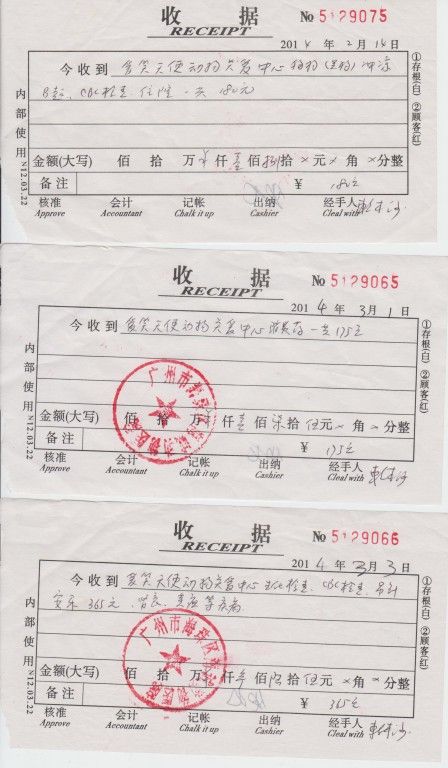 收 据
RECEIPT
No 5129075
2014 年 2月 14日
今收到 含笑天使动物关爱中心 狗狗
B超、CBC检查、住院 一共 180元
金额(大写) 佰 拾 万 仟 壹 佰 捌 拾 × 元 × 角 × 分整
备 注 ¥ 180元
核准 会计 记帐 出纳 经手人
Approve Accountant Chalk it up Cashier Cleal with
内部使用 N12.03.22
①存根(白) ②顾客(红)
收 据
RECEIPT
No 5129065
2014 年 3月 1日
今收到 含笑天使动物关爱中心 一共175元
金额(大写) 佰 拾 万 仟 壹 佰 柒 拾 伍 元 × 角 × 分整
备 注 ¥ 175元
核准 会计 记帐 出纳 经手人
Approve Accountant Chalk it up Cashier Cleal with
内部使用 N12.03.22
①存根(白) ②顾客(红)
广州市海珠区
收 据
RECEIPT
No 5129066
2014 年 3月 3日
今收到 含笑天使动物关爱中心 生化检查、CBC检查、
安乐 365元、 等疾病
金额(大写) 佰 拾 万 仟 叁 佰 陆 拾 伍 元 × 角 × 分整
备 注 ¥ 365元
核准 会计 记帐 出纳 经手人
Approve Accountant Chalk it up Cashier Cleal with
内部使用 N12.03.22
①存根(白) ②顾客(红)
广州市海珠区